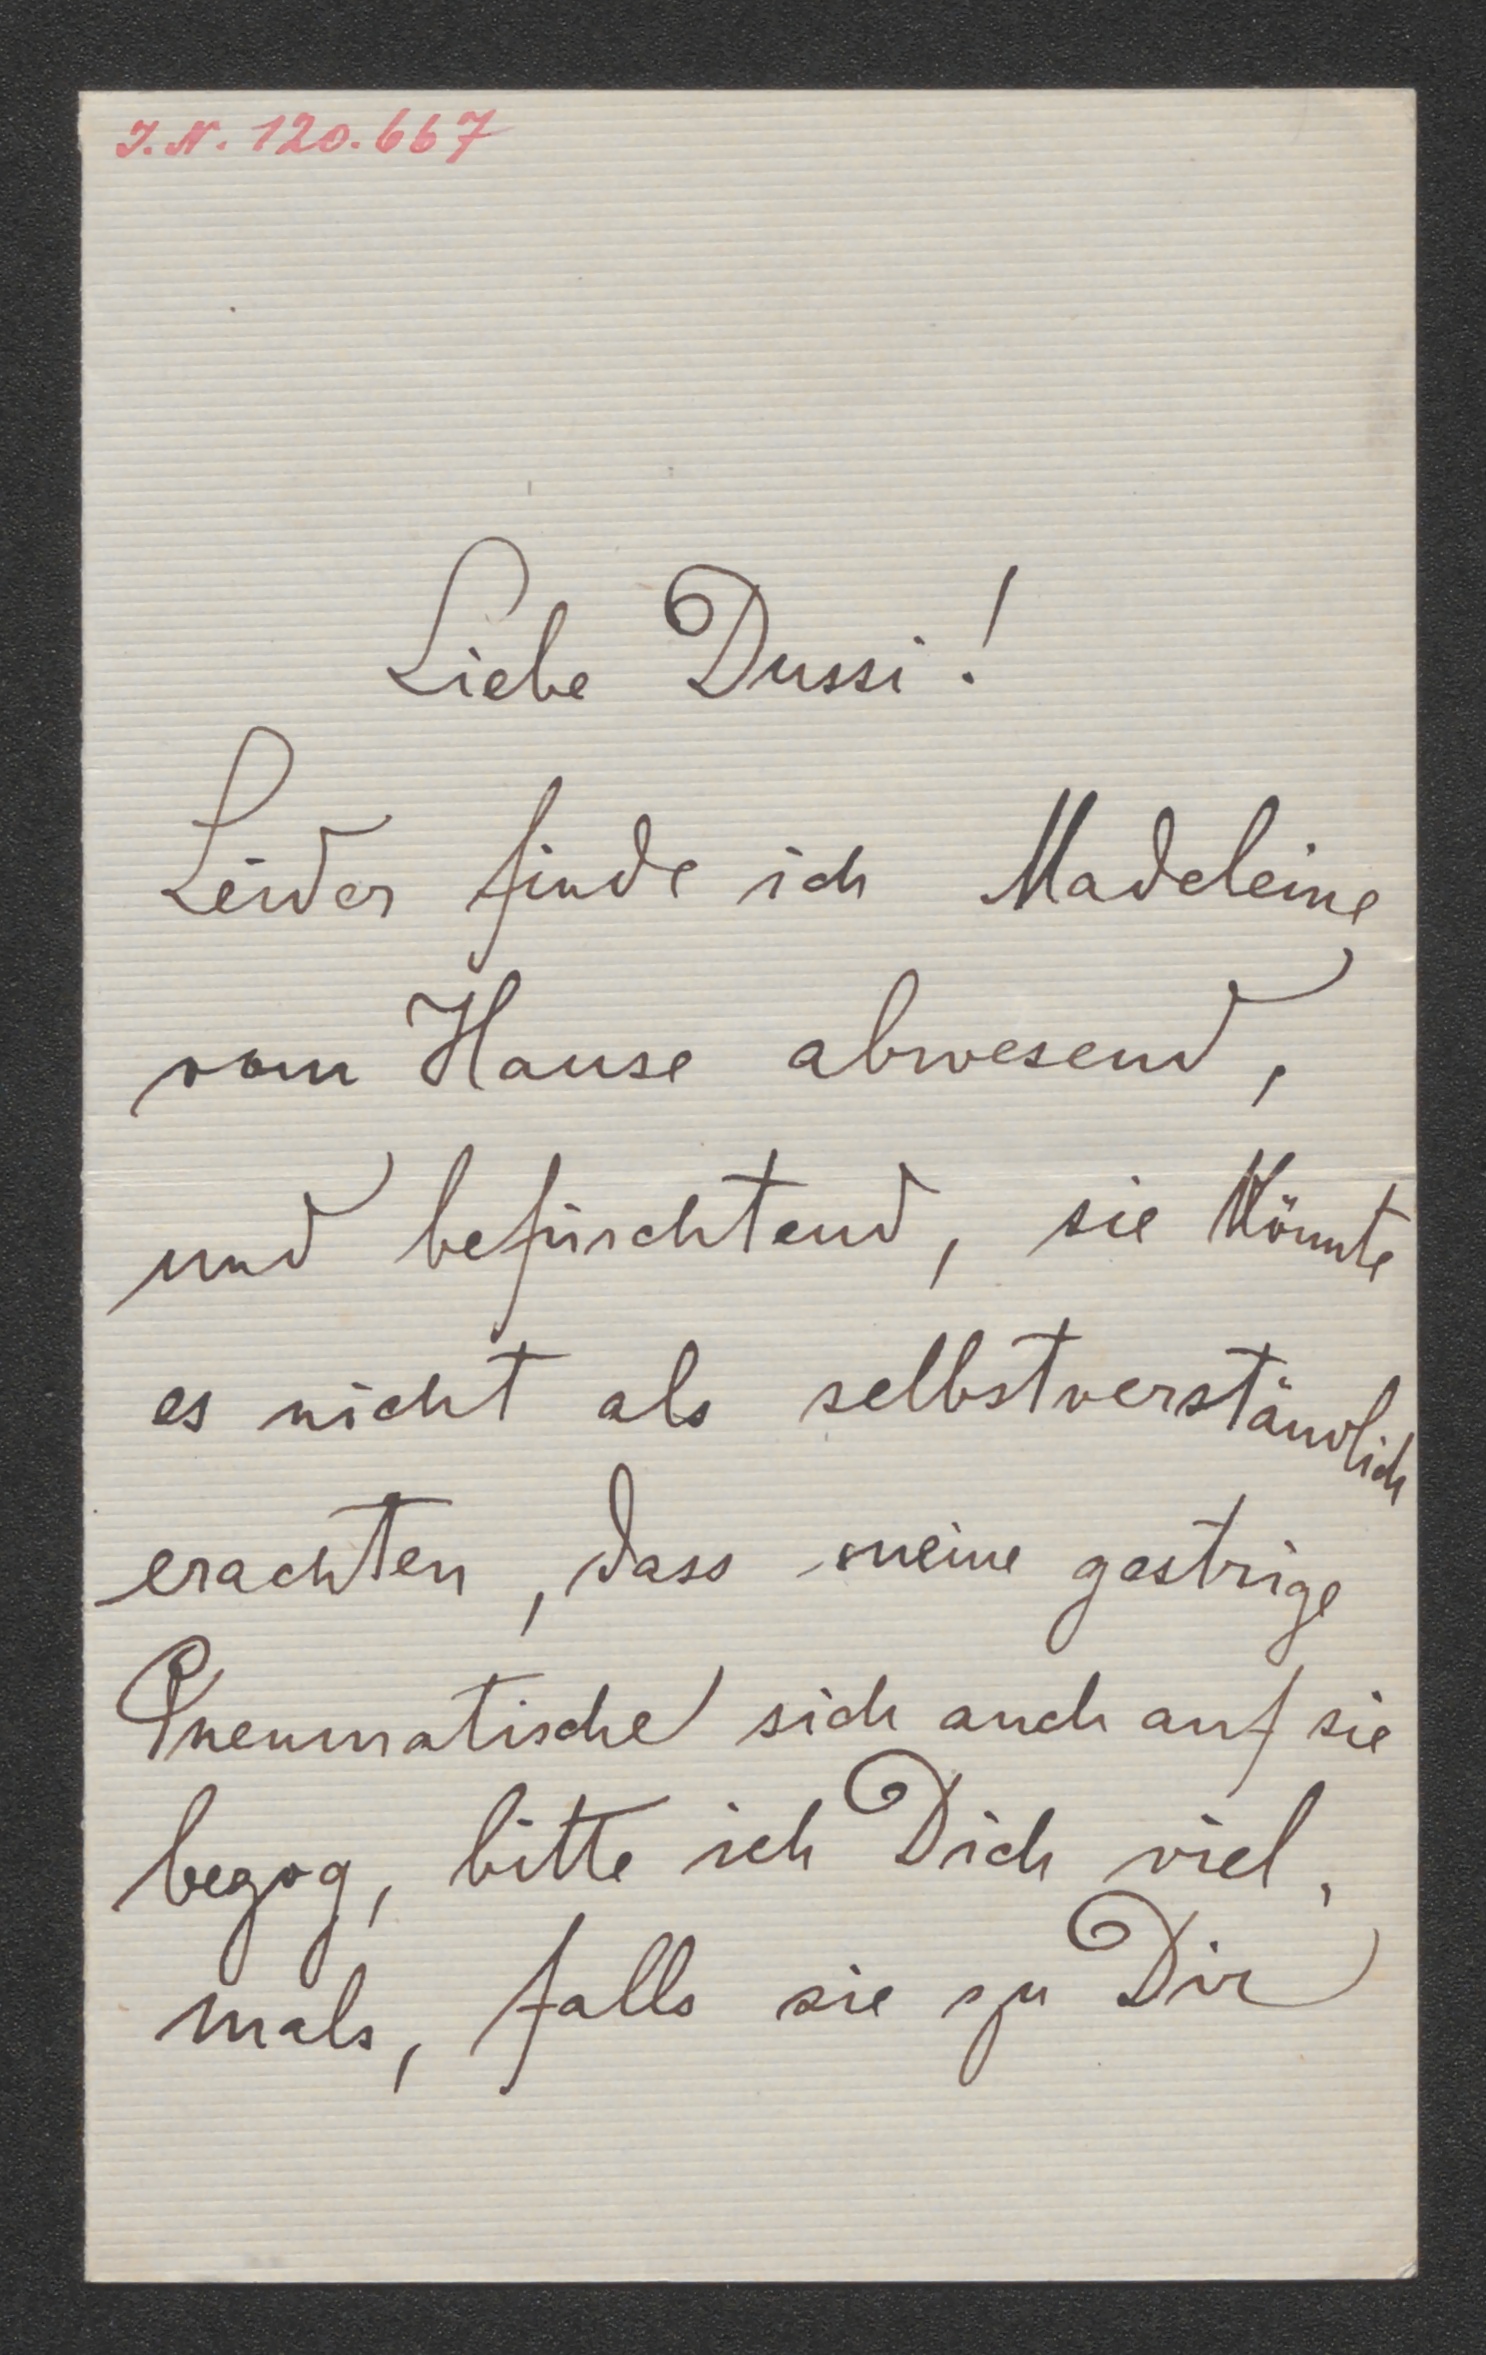 J.N. 120.667
Liebe Dussi!
Leider finde ich Madeleine
vom Hause abwesend,
und befürchtend, sie könnte
es nicht als selbstverständlich
erachten, dass meine gestrige
Pneumatische sich auch auf sie
bezog, bitte ich Dich viel,
mals, falls sie zu Dir